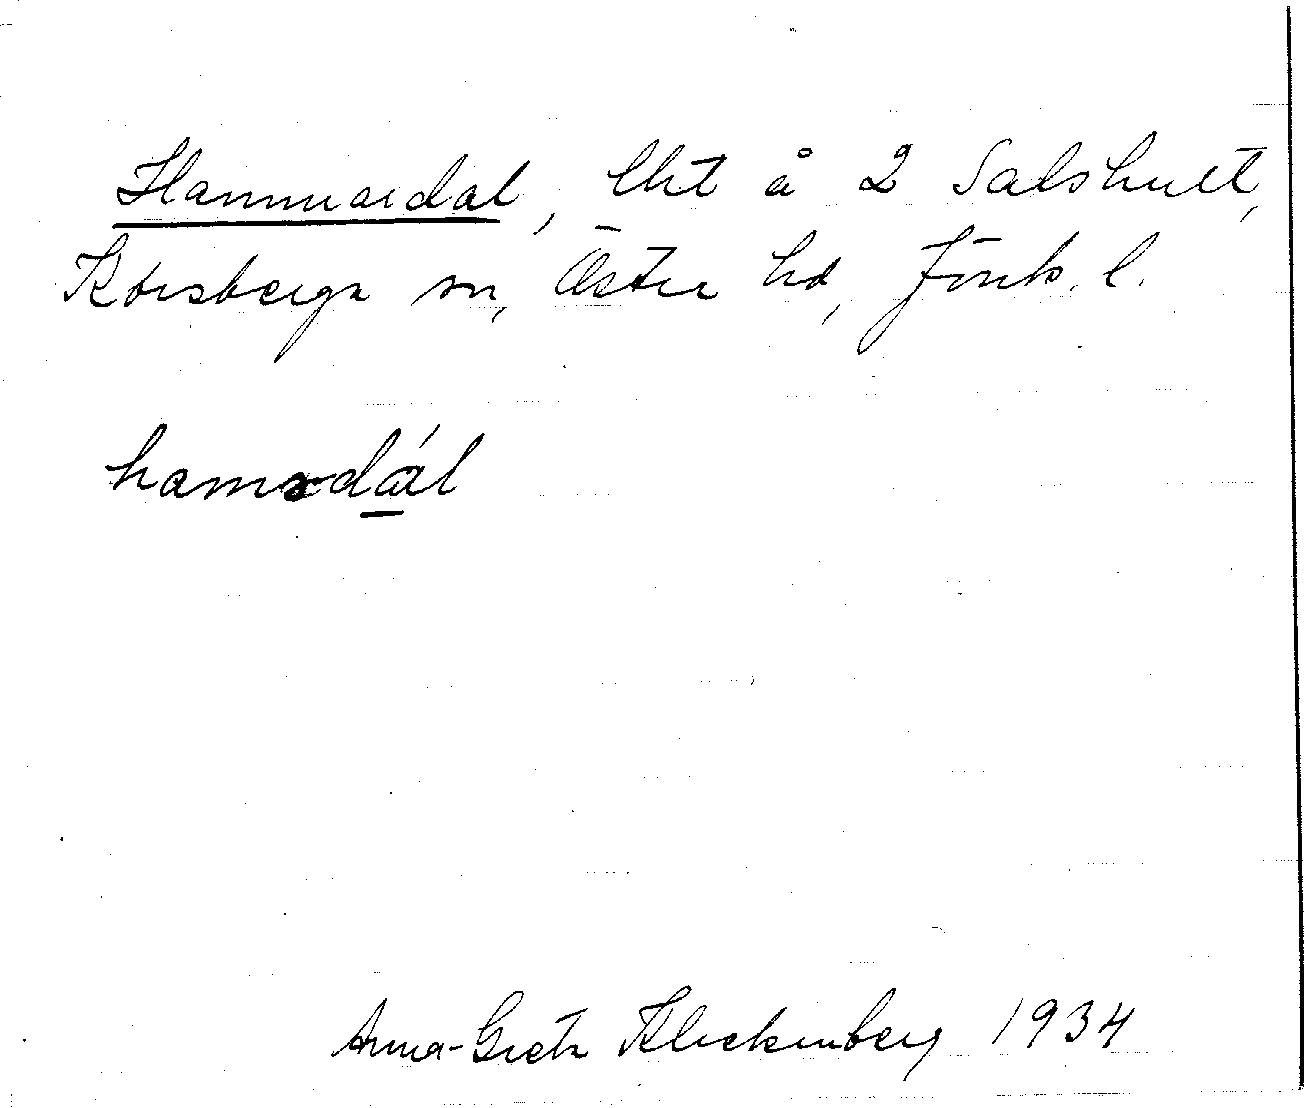 Hammardal, lht å 2 Salshult,
Korsberga sn, Östra hd, Jönk. l.
hamərdál
Anna-Greta Klickenberg 1934